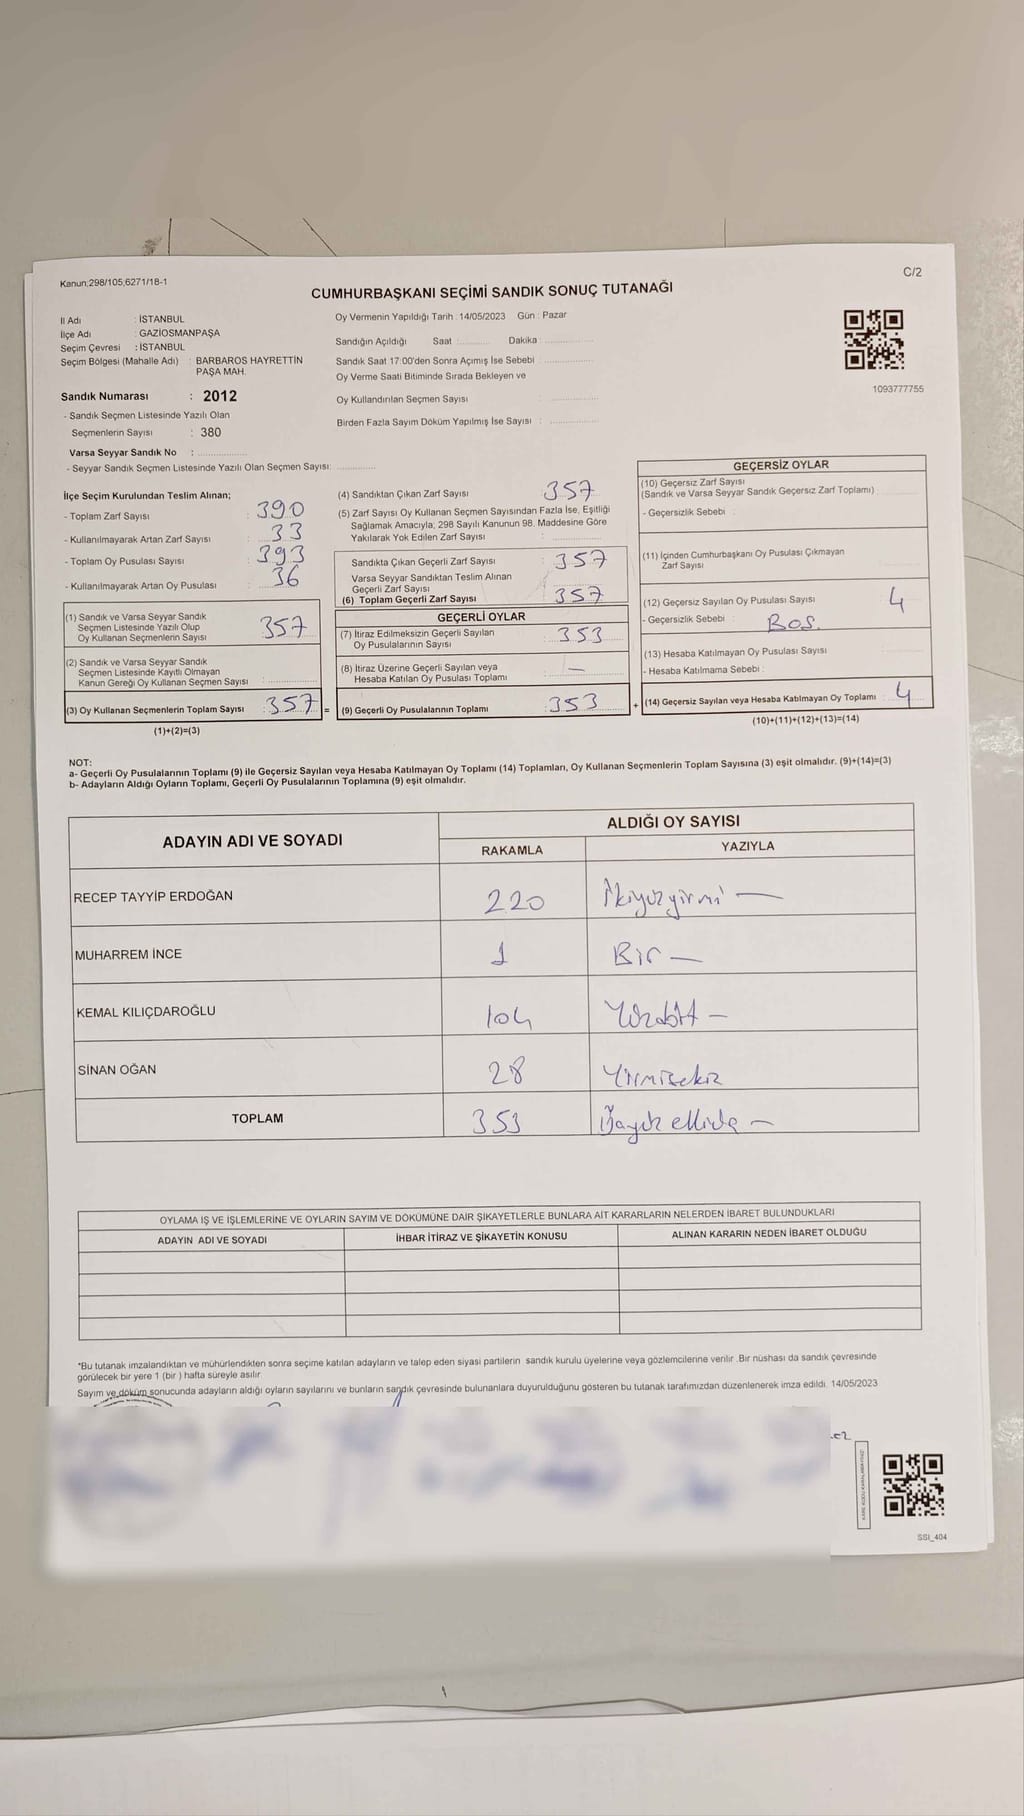 Kanun;298/105,6271/18-1
C/2
CUMHURBAŞKANI SEÇİMİ SANDIK SONUÇ TUTANAĞI
İl Adı : İSTANBUL
İlçe Adı : GAZİOSMANPAŞA
Seçim Çevresi : İSTANBUL
Seçim Bölgesi (Mahalle Adı) : BARBAROS HAYRETTİN
PAŞA MAH.
Sandık Numarası : 2012
- Sandık Seçmen Listesinde Yazılı Olan
Seçmenlerin Sayısı : 380
Varsa Seyyar Sandık No :
- Seyyar Sandık Seçmen Listesinde Yazılı Olan Seçmen Sayısı:
Oy Vermenin Yapıldığı Tarih : 14/05/2023 Gün : Pazar
Sandığın Açıldığı Saat Dakika :
Sandık Saat 17:00'den Sonra Açımış İse Sebebi
Oy Verme Saati Bitiminde Sırada Bekleyen ve
Oy Kullandırılan Seçmen Sayısı :
Birden Fazla Sayım Döküm Yapılmış İse Sayısı :
1093777755
İlçe Seçim Kurulundan Teslim Alınan;
- Toplam Zarf Sayısı : 390
- Kullanılmayarak Artan Zarf Sayısı : 33
- Toplam Oy Pusulası Sayısı : 393
- Kullanılmayarak Artan Oy Pusulası : 36
(1) Sandık ve Varsa Seyyar Sandık
Seçmen Listesinde Yazılı Olup
Oy Kullanan Seçmenlerin Sayısı 357
(2) Sandık ve Varsa Seyyar Sandık
Seçmen Listesinde Kayıtlı Olmayan
Kanun Gereği Oy Kullanan Seçmen Sayısı
(3) Oy Kullanan Seçmenlerin Toplam Sayısı 357 =
(1)+(2)=(3)
(4) Sandıktan Çıkan Zarf Sayısı : 357
(5) Zarf Sayısı Oy Kullanan Seçmen Sayısından Fazla İse, Eşitliği
Sağlamak Amacıyla; 298 Sayılı Kanunun 98. Maddesine Göre
Yakılarak Yok Edilen Zarf Sayısı :
Sandıkta Çıkan Geçerli Zarf Sayısı : 357
Varsa Seyyar Sandıktan Teslim Alınan
Geçerli Zarf Sayısı
(6) Toplam Geçerli Zarf Sayısı : 357
GEÇERLİ OYLAR
(7) İtiraz Edilmeksizin Geçerli Sayılan
Oy Pusulalarının Sayısı : 353
(8) İtiraz Üzerine Geçerli Sayılan veya
Hesaba Katılan Oy Pusulası Toplamı : —
(9) Geçerli Oy Pusulalarının Toplamı : 353 +
GEÇERSİZ OYLAR
(10) Geçersiz Zarf Sayısı
(Sandık ve Varsa Seyyar Sandık Geçersiz Zarf Toplamı)
- Geçersizlik Sebebi :
(11) İçinden Cumhurbaşkanı Oy Pusulası Çıkmayan
Zarf Sayısı
(12) Geçersiz Sayılan Oy Pusulası Sayısı : 4
- Geçersizlik Sebebi : Boş.
(13) Hesaba Katılmayan Oy Pusulası Sayısı
- Hesaba Katılmama Sebebi :
(14) Geçersiz Sayılan veya Hesaba Katılmayan Oy Toplamı : 4
(10)+(11)+(12)+(13)=(14)
NOT:
a- Geçerli Oy Pusulalarının Toplamı (9) ile Geçersiz Sayılan veya Hesaba Katılmayan Oy Toplamı (14) Toplamları, Oy Kullanan Seçmenlerin Toplam Sayısına (3) eşit olmalıdır. (9)+(14)=(3)
b- Adayların Aldığı Oyların Toplamı, Geçerli Oy Pusulalarının Toplamına (9) eşit olmalıdır.
ADAYIN ADI VE SOYADI ALDIĞI OY SAYISI
RAKAMLA YAZIYLA
RECEP TAYYİP ERDOĞAN 220 İkiyüzyirmi —
MUHARREM İNCE 1 Bir —
KEMAL KILIÇDAROĞLU 104 Yüzdört —
SİNAN OĞAN 28 Yirmisekiz
TOPLAM 353 Üçyüz elliüç —
OYLAMA İŞ VE İŞLEMLERİNE VE OYLARIN SAYIM VE DÖKÜMÜNE DAİR ŞİKAYETLERLE BUNLARA AİT KARARLARIN NELERDEN İBARET BULUNDUKLARI
ADAYIN ADI VE SOYADI İHBAR İTİRAZ VE ŞİKAYETİN KONUSU ALINAN KARARIN NEDEN İBARET OLDUĞU
*Bu tutanak imzalandıktan ve mühürlendikten sonra seçime katılan adayların ve talep eden siyasi partilerin sandık kurulu üyelerine veya gözlemcilerine verilir .Bir nüshası da sandık çevresinde
görülecek bir yere 1 (bir ) hafta süreyle asılır.
Sayım ve döküm sonucunda adayların aldığı oyların sayılarını ve bunların sandık çevresinde bulunanlara duyurulduğunu gösteren bu tutanak tarafımızdan düzenlenerek imza edildi. 14/05/2023
SSI_404